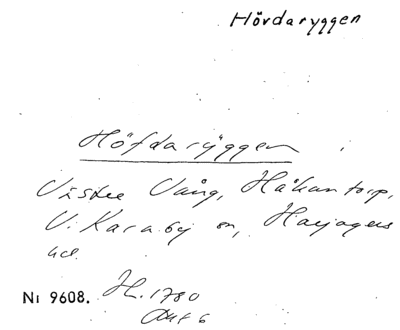 Hördaryggen
Höfdaryggen i
Vistee Vång, Håkantorp,
V. Karaby sn, Harjagers
hd.
Ni 9608. H. 1780
Akt 6